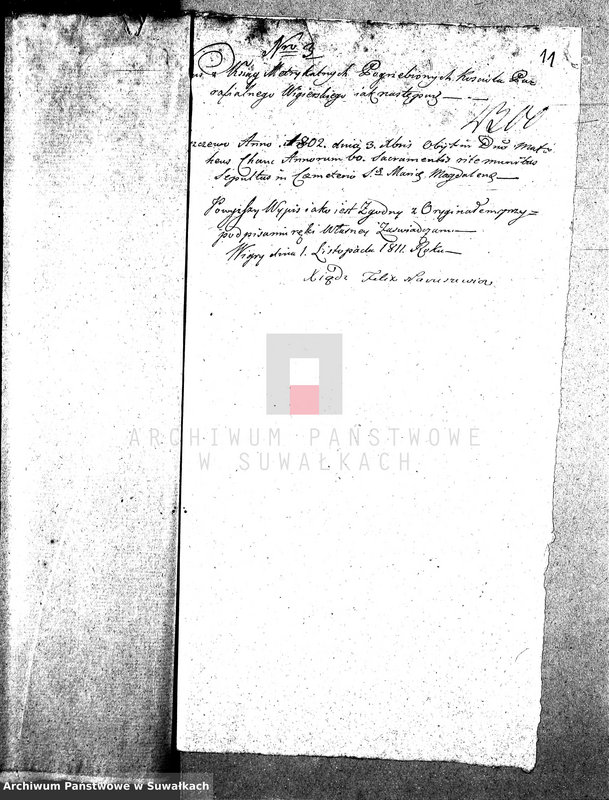 Nro 3
11
z Xiąg Metrykalnych Pogrzebionych Kościoła Pa=
rafialnego Wigierskiego iak następuie —
Anno 1802. dnia 3. Xbris Obyt in Dno Mat=
heus Chanc Annorum 60. Sacramentis rite munitus
Sepultus in Cemeterio Stæ Mariæ Magdalenæ —
Powyższy Wypis iako iest Zgodny z Oryginałem przy=
podpisaniu ręki własney Zaświadczam —
Wigry dnia 1. Listopada 1811. Roku —
Xiądz Felix
ARCHIWUM PAŃSTWOWE
W SUWAŁKACH
Archiwum Państwowe w Suwałkach